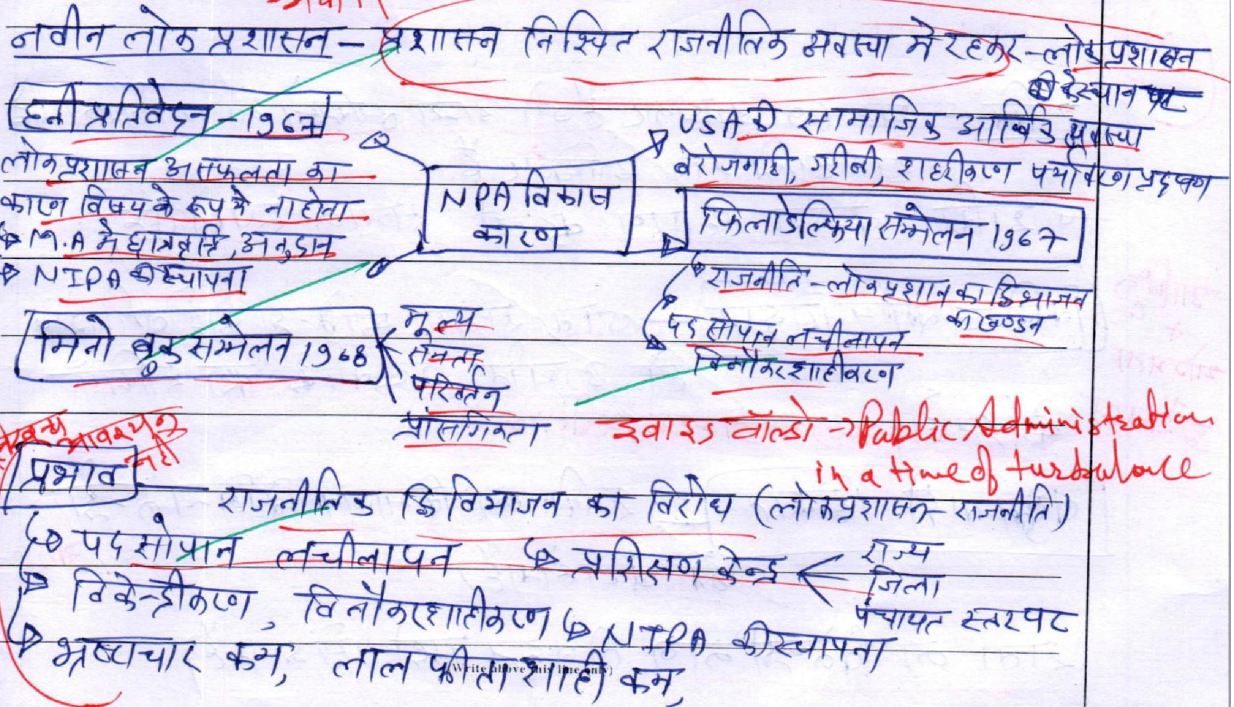 नवीन लोक प्रशासन - प्रशासन निश्चित राजनीतिक व्यवस्था मे रहकर - लोकप्रशासन
के स्थान पर
हनी प्रतिवेदन - 1967
लोकप्रशासन असफलता का
कारण विषय के रूप मे ना होना
M.A मे छात्रवृति, अनुदान
NIPA की स्थापना
NPA विकास
कारण
USA की सामाजिक आर्थिक व्यवस्था
बेरोजगारी, गरीबी, शहरीकरण पर्यावरण प्रदूषण
फिलाडेल्फिया सम्मेलन 1967
राजनीति - लोकप्रशासन का द्विभाजन
का खण्डन
पद सोपान लचीलापन
विनौकरशाहीकरण
मिनो ब्रुक सम्मेलन 1968
मूल्य
समता
परिवर्तन
प्रांसगिकता
डवाइट वॉल्डो → Public Administration
in a time of turbulence
आवश्यक
नही
प्रभाव
राजनीतिक द्विविभाजन का विरोध (लोकप्रशासन - राजनीति)
पद सोपान लचीलापन
प्रशिक्षण केन्द्र
राज्य
जिला
पंचायत स्तर पर
विकेन्द्रीकरण, विनौकरशाहीकरण
NIPA की स्थापना
भ्रष्टाचार कम, लाल फीताशाही कम,
(Write above this line only)